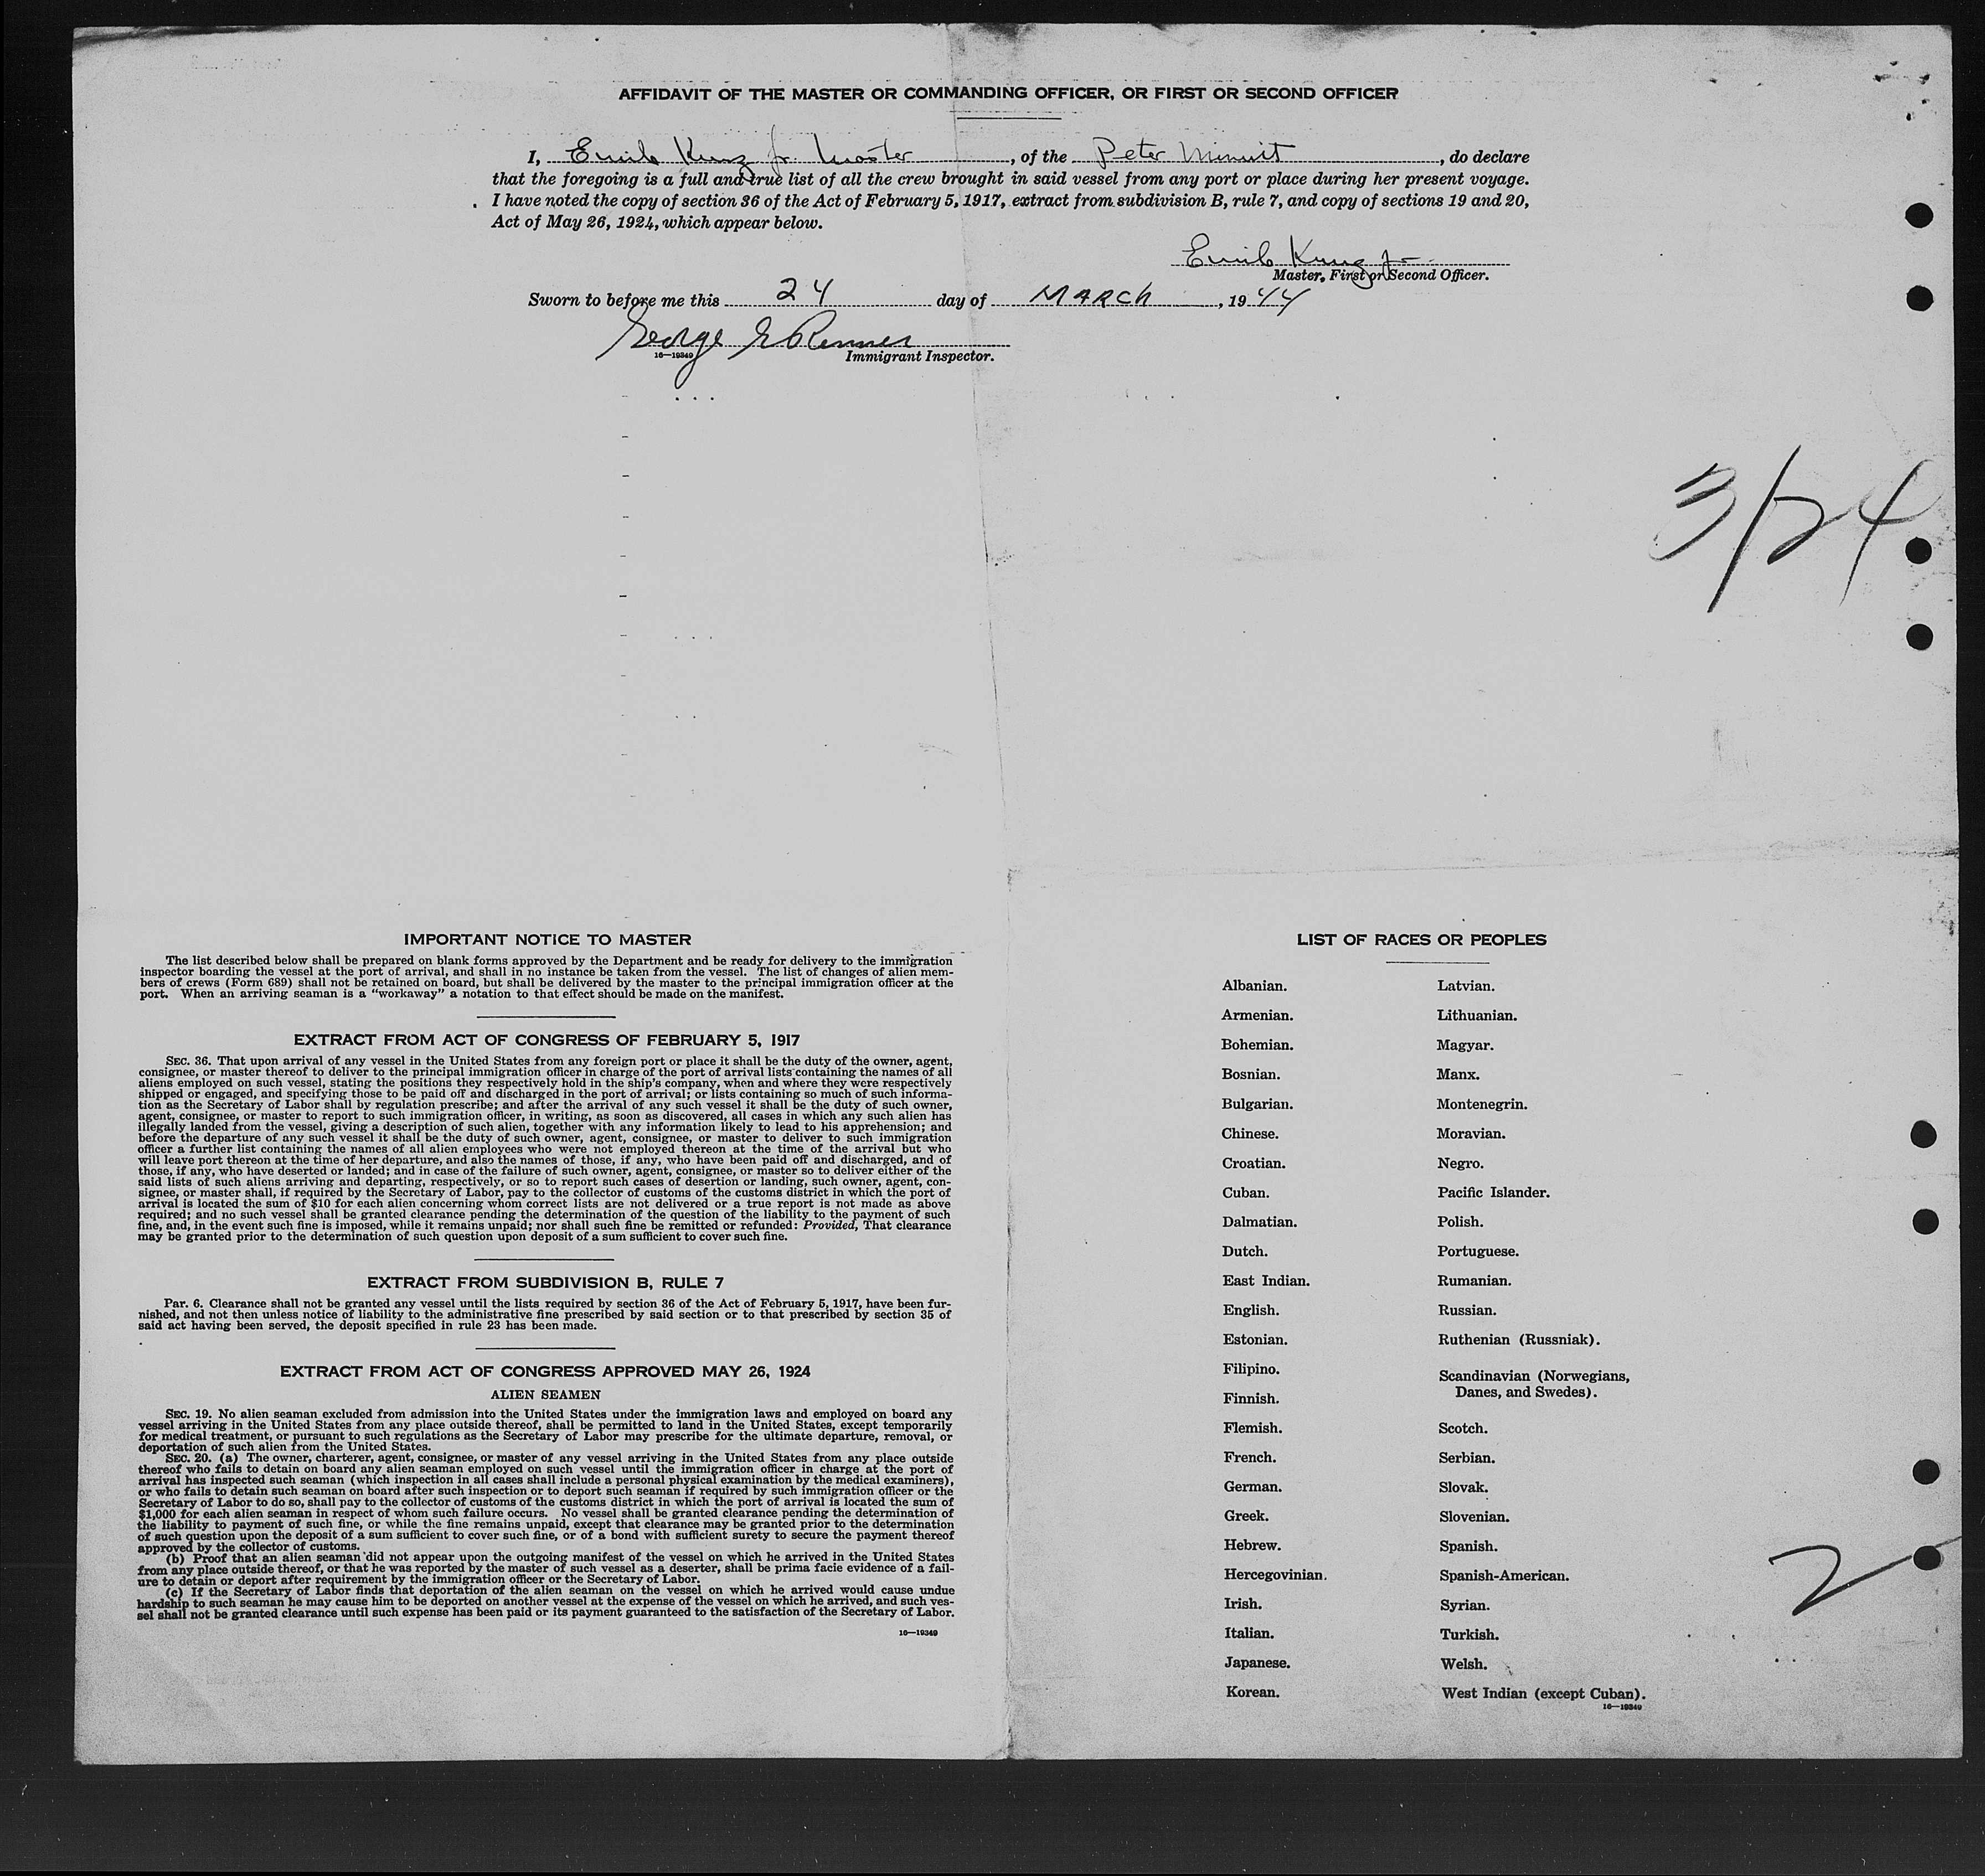 AFFIDAVIT OF THE MASTER OR COMMANDING OFFICER, OR FIRST OR SECOND OFFICER
I, Emile Kunz Jr. Master, of the Peter Minuit, do declare
that the foregoing is a full and true list of all the crew brought in said vessel from any port or place during her present voyage.
I have noted the copy of section 36 of the Act of February 5, 1917, extract from subdivision B, rule 7, and copy of sections 19 and 20,
Act of May 26, 1924, which appear below.
Emile Kunz Jr.
Master, First or Second Officer.
Sworn to before me this 24 day of MARCH, 1944
George E Renner
16—19349
Immigrant Inspector.
3/24
IMPORTANT NOTICE TO MASTER
The list described below shall be prepared on blank forms approved by the Department and be ready for delivery to the immigration
inspector boarding the vessel at the port of arrival, and shall in no instance be taken from the vessel. The list of changes of alien mem-
bers of crews (Form 689) shall not be retained on board, but shall be delivered by the master to the principal immigration officer at the
port. When an arriving seaman is a "workaway" a notation to that effect should be made on the manifest.
EXTRACT FROM ACT OF CONGRESS OF FEBRUARY 5, 1917
SEC. 36. That upon arrival of any vessel in the United States from any foreign port or place it shall be the duty of the owner, agent,
consignee, or master thereof to deliver to the principal immigration officer in charge of the port of arrival lists containing the names of all
aliens employed on such vessel, stating the positions they respectively hold in the ship's company, when and where they were respectively
shipped or engaged, and specifying those to be paid off and discharged in the port of arrival; or lists containing so much of such informa-
tion as the Secretary of Labor shall by regulation prescribe; and after the arrival of any such vessel it shall be the duty of such owner,
agent, consignee, or master to report to such immigration officer, in writing, as soon as discovered, all cases in which any such alien has
illegally landed from the vessel, giving a description of such alien, together with any information likely to lead to his apprehension; and
before the departure of any such vessel it shall be the duty of such owner, agent, consignee, or master to deliver to such immigration
officer a further list containing the names of all alien employees who were not employed thereon at the time of the arrival but who
will leave port thereon at the time of her departure, and also the names of those, if any, who have been paid off and discharged, and of
those, if any, who have deserted or landed; and in case of the failure of such owner, agent, consignee, or master so to deliver either of the
said lists of such aliens arriving and departing, respectively, or so to report such cases of desertion or landing, such owner, agent, con-
signee, or master shall, if required by the Secretary of Labor, pay to the collector of customs of the customs district in which the port of
arrival is located the sum of $10 for each alien concerning whom correct lists are not delivered or a true report is not made as above
required; and no such vessel shall be granted clearance pending the determination of the question of the liability to the payment of such
fine, and, in the event such fine is imposed, while it remains unpaid; nor shall such fine be remitted or refunded: Provided, That clearance
may be granted prior to the determination of such question upon deposit of a sum sufficient to cover such fine.
EXTRACT FROM SUBDIVISION B, RULE 7
PAR. 6. Clearance shall not be granted any vessel until the lists required by section 36 of the Act of February 5, 1917, have been fur-
nished, and not then unless notice of liability to the administrative fine prescribed by said section or to that prescribed by section 35 of
said act having been served, the deposit specified in rule 23 has been made.
EXTRACT FROM ACT OF CONGRESS APPROVED MAY 26, 1924
ALIEN SEAMEN
SEC. 19. No alien seaman excluded from admission into the United States under the immigration laws and employed on board any
vessel arriving in the United States from any place outside thereof, shall be permitted to land in the United States, except temporarily
for medical treatment, or pursuant to such regulations as the Secretary of Labor may prescribe for the ultimate departure, removal, or
deportation of such alien from the United States.
SEC. 20. (a) The owner, charterer, agent, consignee, or master of any vessel arriving in the United States from any place outside
thereof who fails to detain on board any alien seaman employed on such vessel until the immigration officer in charge at the port of
arrival has inspected such seaman (which inspection in all cases shall include a personal physical examination by the medical examiners),
or who fails to detain such seaman on board after such inspection or to deport such seaman if required by such immigration officer or the
Secretary of Labor to do so, shall pay to the collector of customs of the customs district in which the port of arrival is located the sum of
$1,000 for each alien seaman in respect of whom such failure occurs. No vessel shall be granted clearance pending the determination of
the liability to payment of such fine, or while the fine remains unpaid, except that clearance may be granted prior to the determination
of such question upon the deposit of a sum sufficient to cover such fine, or of a bond with sufficient surety to secure the payment thereof
approved by the collector of customs.
(b) Proof that an alien seaman did not appear upon the outgoing manifest of the vessel on which he arrived in the United States
from any place outside thereof, or that he was reported by the master of such vessel as a deserter, shall be prima facie evidence of a fail-
ure to detain or deport after requirement by the immigration officer or the Secretary of Labor.
(c) If the Secretary of Labor finds that deportation of the alien seaman on the vessel on which he arrived would cause undue
hardship to such seaman he may cause him to be deported on another vessel at the expense of the vessel on which he arrived, and such ves-
sel shall not be granted clearance until such expense has been paid or its payment guaranteed to the satisfaction of the Secretary of Labor.
16—19349
LIST OF RACES OR PEOPLES
Albanian.
Armenian.
Bohemian.
Bosnian.
Bulgarian.
Chinese.
Croatian.
Cuban.
Dalmatian.
Dutch.
East Indian.
English.
Estonian.
Filipino.
Finnish.
Flemish.
French.
German.
Greek.
Hebrew.
Hercegovinian.
Irish.
Italian.
Japanese.
Korean.
Latvian.
Lithuanian.
Magyar.
Manx.
Montenegrin.
Moravian.
Negro.
Pacific Islander.
Polish.
Portuguese.
Rumanian.
Russian.
Ruthenian (Russniak).
Scandinavian (Norwegians,
Danes, and Swedes).
Scotch.
Serbian.
Slovak.
Slovenian.
Spanish.
Spanish-American.
Syrian.
Turkish.
Welsh.
West Indian (except Cuban).
16—19349
2